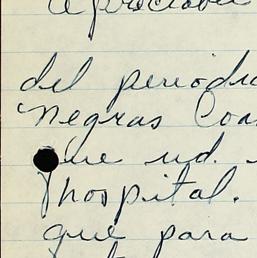 del period
Negras Coa
que ud.
hospital.
que para